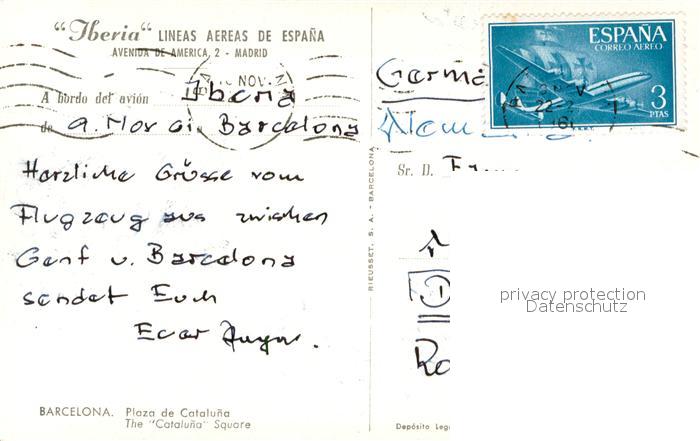 "Iberia" LINEAS AEREAS DE ESPAÑA
AVENIDA DE AMERICA, 2 - MADRID
NOV.
A bordo del avión Iberia
de a. Barcelona
Herzliche Grüsse vom
Flugzeug aus zwischen
Genf u. Barcelona
sendet Euch
Euer
BARCELONA. Plaza de Cataluña
The "Cataluña" Square
RIEUSSET, S. A. - BARCELONA
ESPAÑA
CORREO AEREO
3
PTAS
22
Germa
Alem
Sr. D.
D
privacy protection
Datenschutz
Depósito Leg